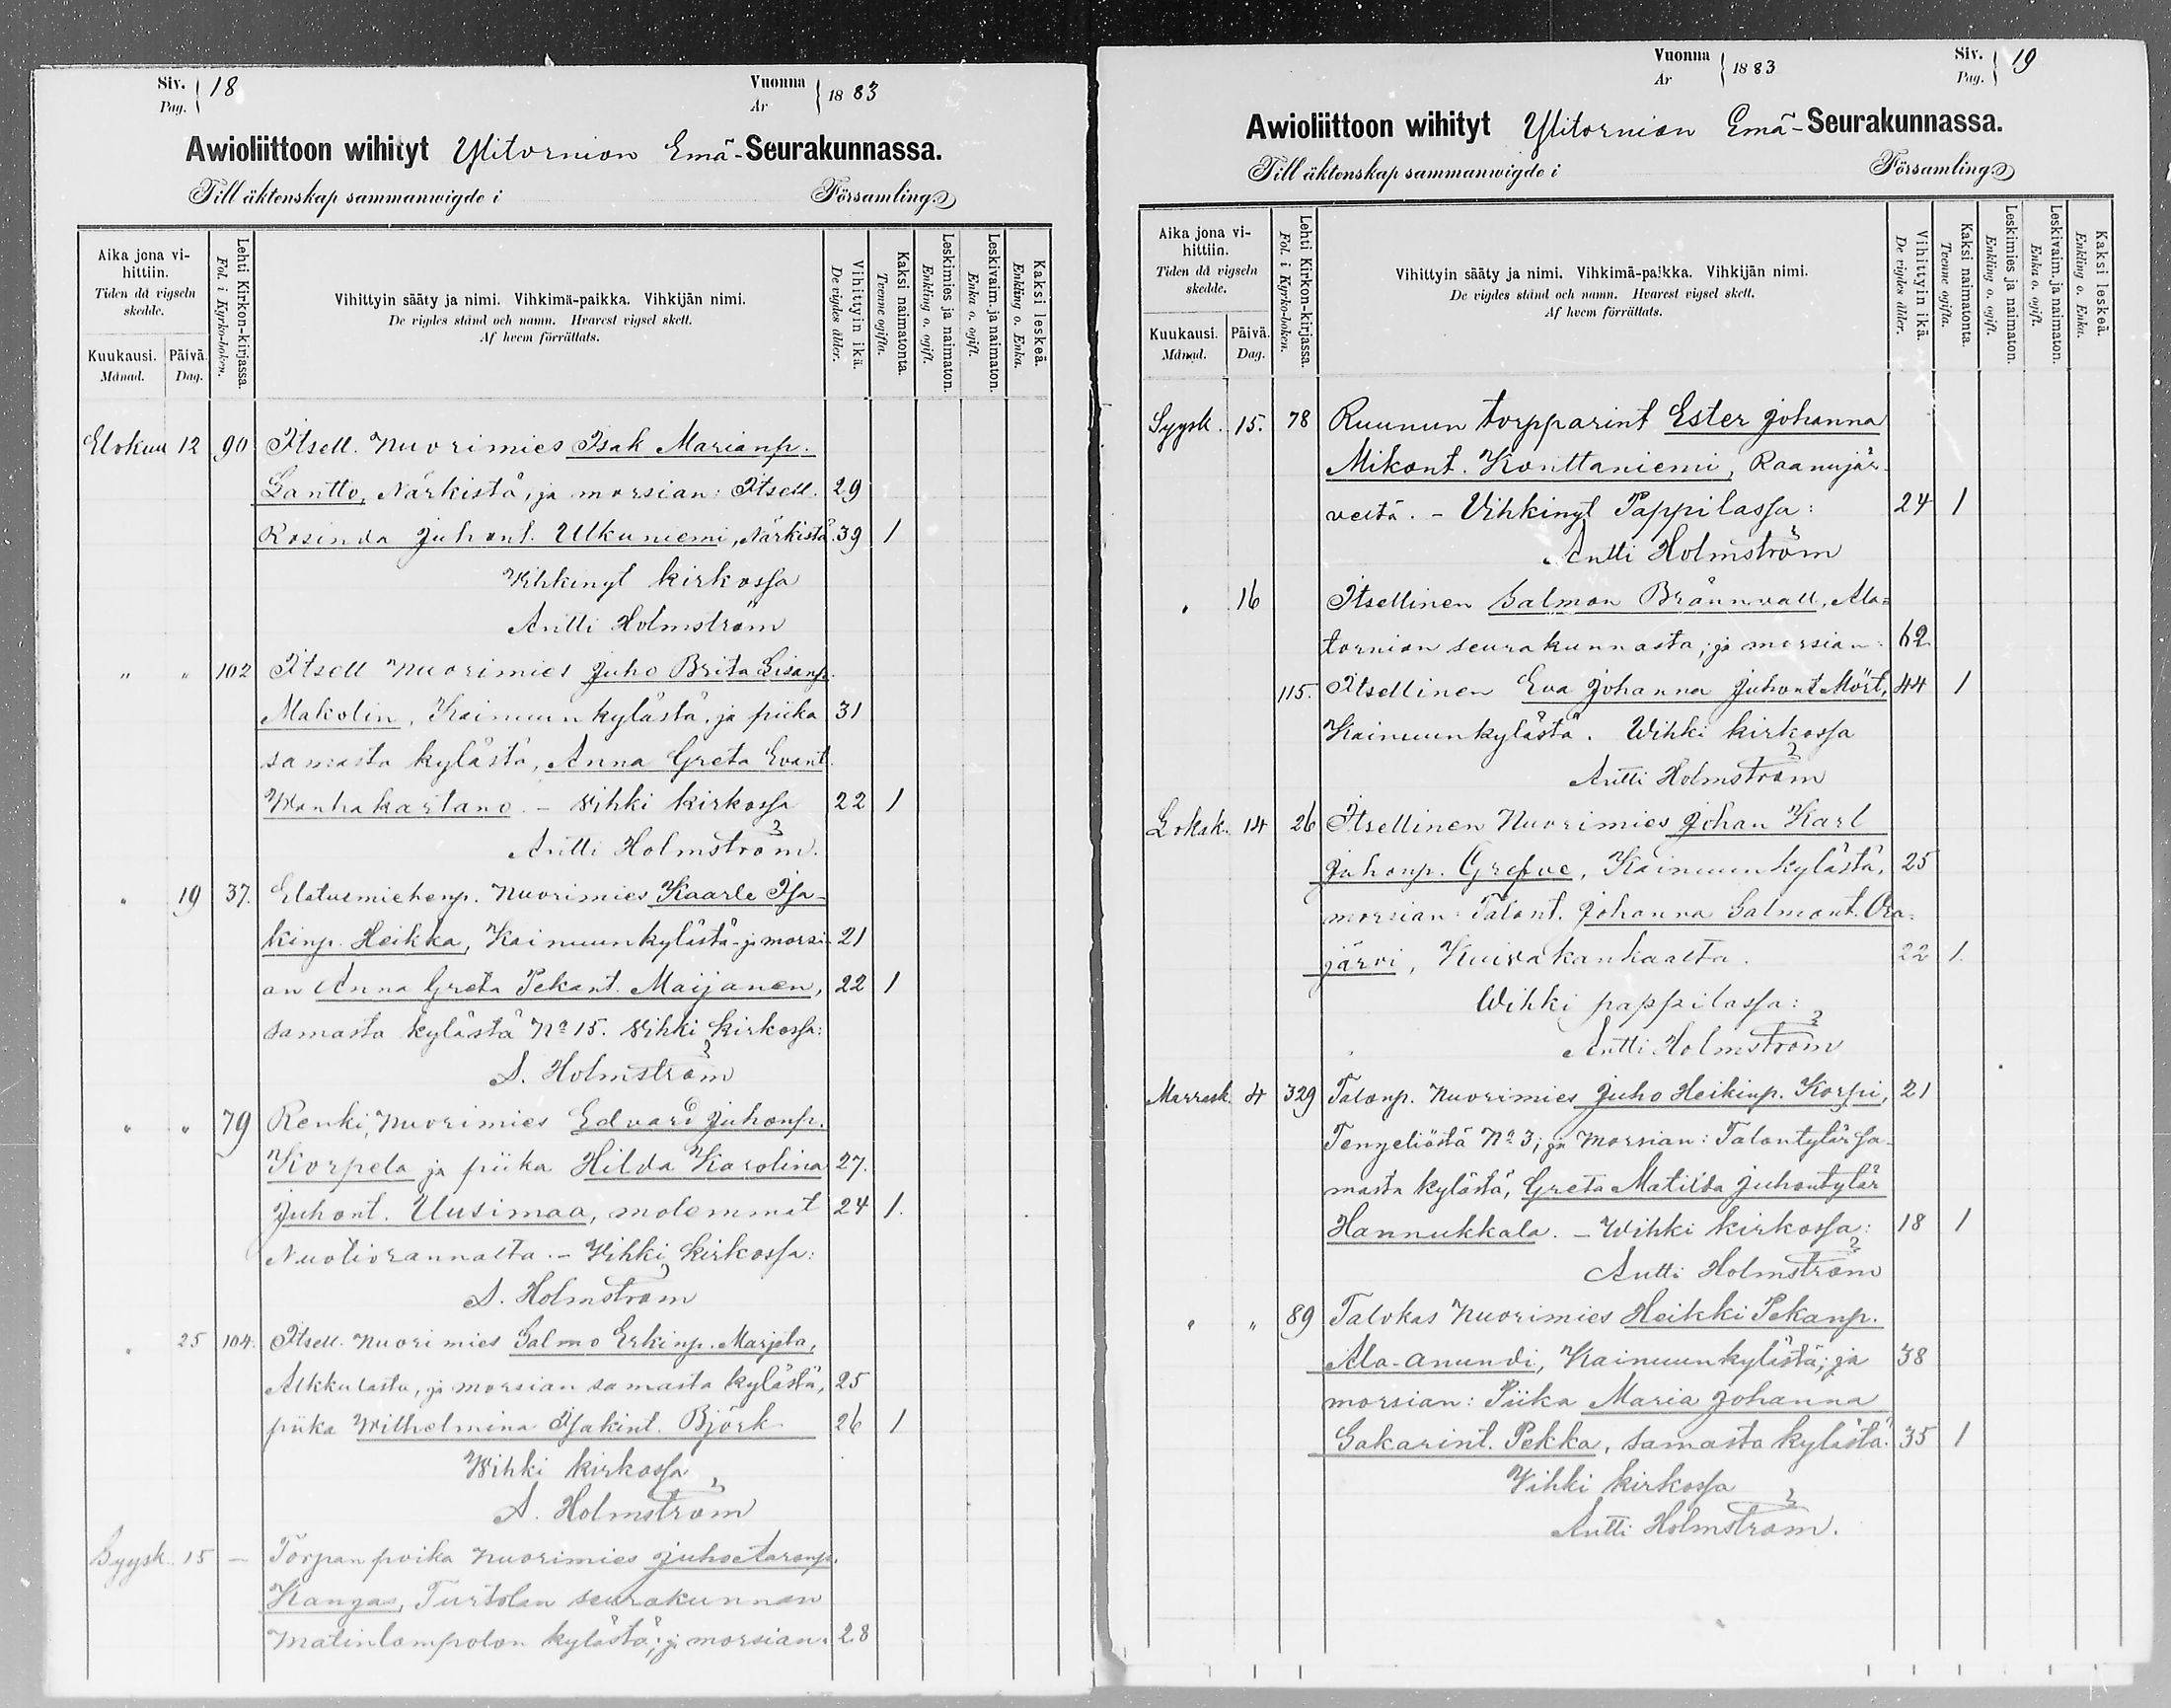 Siv. 18 Vuonna 1883
Pag. År
Awioliittoon wihityt Ylitornion Emä-Seurakunnassa.
Till äktenskap sammanwigde i Församling.
Aika jona vihittiin.
Tiden då vigseln skedde.
Kuukausi. Månad.
Päivä. Dag.
Lehti Kirkon-kirjassa.
Fol. i Kyrko-boken.
Vihittyin sääty ja nimi. Vihkimä-paikka. Vihkijän nimi.
De vigdes stånd och namn. Hvarest vigsel skett.
Af hvem förrättats.
Vihittyin ikä.
De vigdes ålder.
Kaksi naimatonta.
Tvenne ogifta.
Leskimies ja naimaton.
Enkling o. ogift.
Leskivaim. ja naimaton.
Enka o. ogift.
Kaksi leskeä.
Enkling o. Enka.
Elokuu 12 90 Itsell. Nuorimies Isak Marianp.
Santto, Närkistä, ja morsian: Itsell. 29
Rosinda Juhont. Ulkuniemi, Närkistä 39 1
Vihkinyt kirkossa
Antti Holmström
" " 102 Itsell Nuorimies Juho Brita Lisanp.
Makolin, Kainuunkylästä, ja piika 31
samasta kylästä, Anna Greta Evant.
Wanhakartano. - Vihki kirkossa 22 1
Antti Holmström.
" 19 37. Elatusmiehenp. Nuorimies Kaarle Isa-
kinp. Heikka, Kainuunkylästä - ja morsi- 21
an Anna Greta Pekant. Maijanen, 22 1
samasta kylästä No 15. Vihki kirkossa:
A. Holmström
" " 79 Renki, Nuorimies Edvard Juhonp.
Korpela ja piika Hilda Karolina 27.
Juhont. Uusimaa, molemmat 24 1.
Nuotiorannalta. - Vihki kirkossa:
A. Holmström
" 25 104. Itsell. Nuorimies Salmo Erkinp. Marjeta,
Alkkulasta, ja morsian samasta kylästä, 25
piika Wilhelmina Isakint. Björk 26 1
Wihki kirkossa
A. Holmström
Syysk. 15 - Torpanpoika Nuorimies Juho Aaronp.
Kangas, Turtolan seurakunnan
Matinlompolon kylästä; ja morsian. 28
Vuonna 1883 Siv. 19
År Pag.
Awioliittoon wihityt Ylitornion Emä-Seurakunnassa.
Till äktenskap sammanwigde i Församling.
Aika jona vihittiin.
Tiden då vigseln skedde.
Kuukausi. Månad.
Päivä. Dag.
Lehti Kirkon-kirjassa.
Fol. i Kyrko-boken.
Vihittyin sääty ja nimi. Vihkimä-paikka. Vihkijän nimi.
De vigdes stånd och namn. Hvarest vigsel skett.
Af hvem förrättats.
Vihittyin ikä.
De vigdes ålder.
Kaksi naimatonta.
Tvenne ogifta.
Leskimies ja naimaton.
Enkling o. ogift.
Leskivaim. ja naimaton.
Enka o. ogift.
Kaksi leskeä.
Enkling o. Enka.
Syysk. 15. 78 Ruunun torpparint Ester Johanna
Mikont. Konttaniemi, Raanujär-
veltä. - Vihkinyt Pappilassa: 24 1
Antti Holmström
" 16 Itsellinen Salmon Brännvall, Ala-
tornion seurakunnasta; ja morsian: 62
115. Itsellinen Eva Johanna Juhont Mört, 44 1
Kainuunkylästä. Wihki kirkossa
Antti Holmström
Lokak. 14 26 Itsellinen Nuorimies Johan Karl
Juhonp. Grefve, Kainuunkylästä, 25
morsian: Talont. Johanna Salmont. Ora-
järvi, Kuivakankaalta. 22 1.
Wihki pappilassa:
Antti Holmström
Marrask. 4 329 Talonp. Nuorimies Juho Heikinp. Korpi, 21
Tengeliöstä No 3; ja Morsian: Talontytär sa-
masta kylästä, Greta Matilda Juhontytär
Hannukkala. - Wihki kirkossa: 18 1
Antti Holmström
" " 89 Talokas Nuorimies Heikki Pekanp.
Ala-anundi, Kainuunkylästä; ja 38
morsian: Piika Maria Johanna
Sakarint. Pekka, samasta kylästä. 35 1
Vihki kirkossa
Antti Holmström.